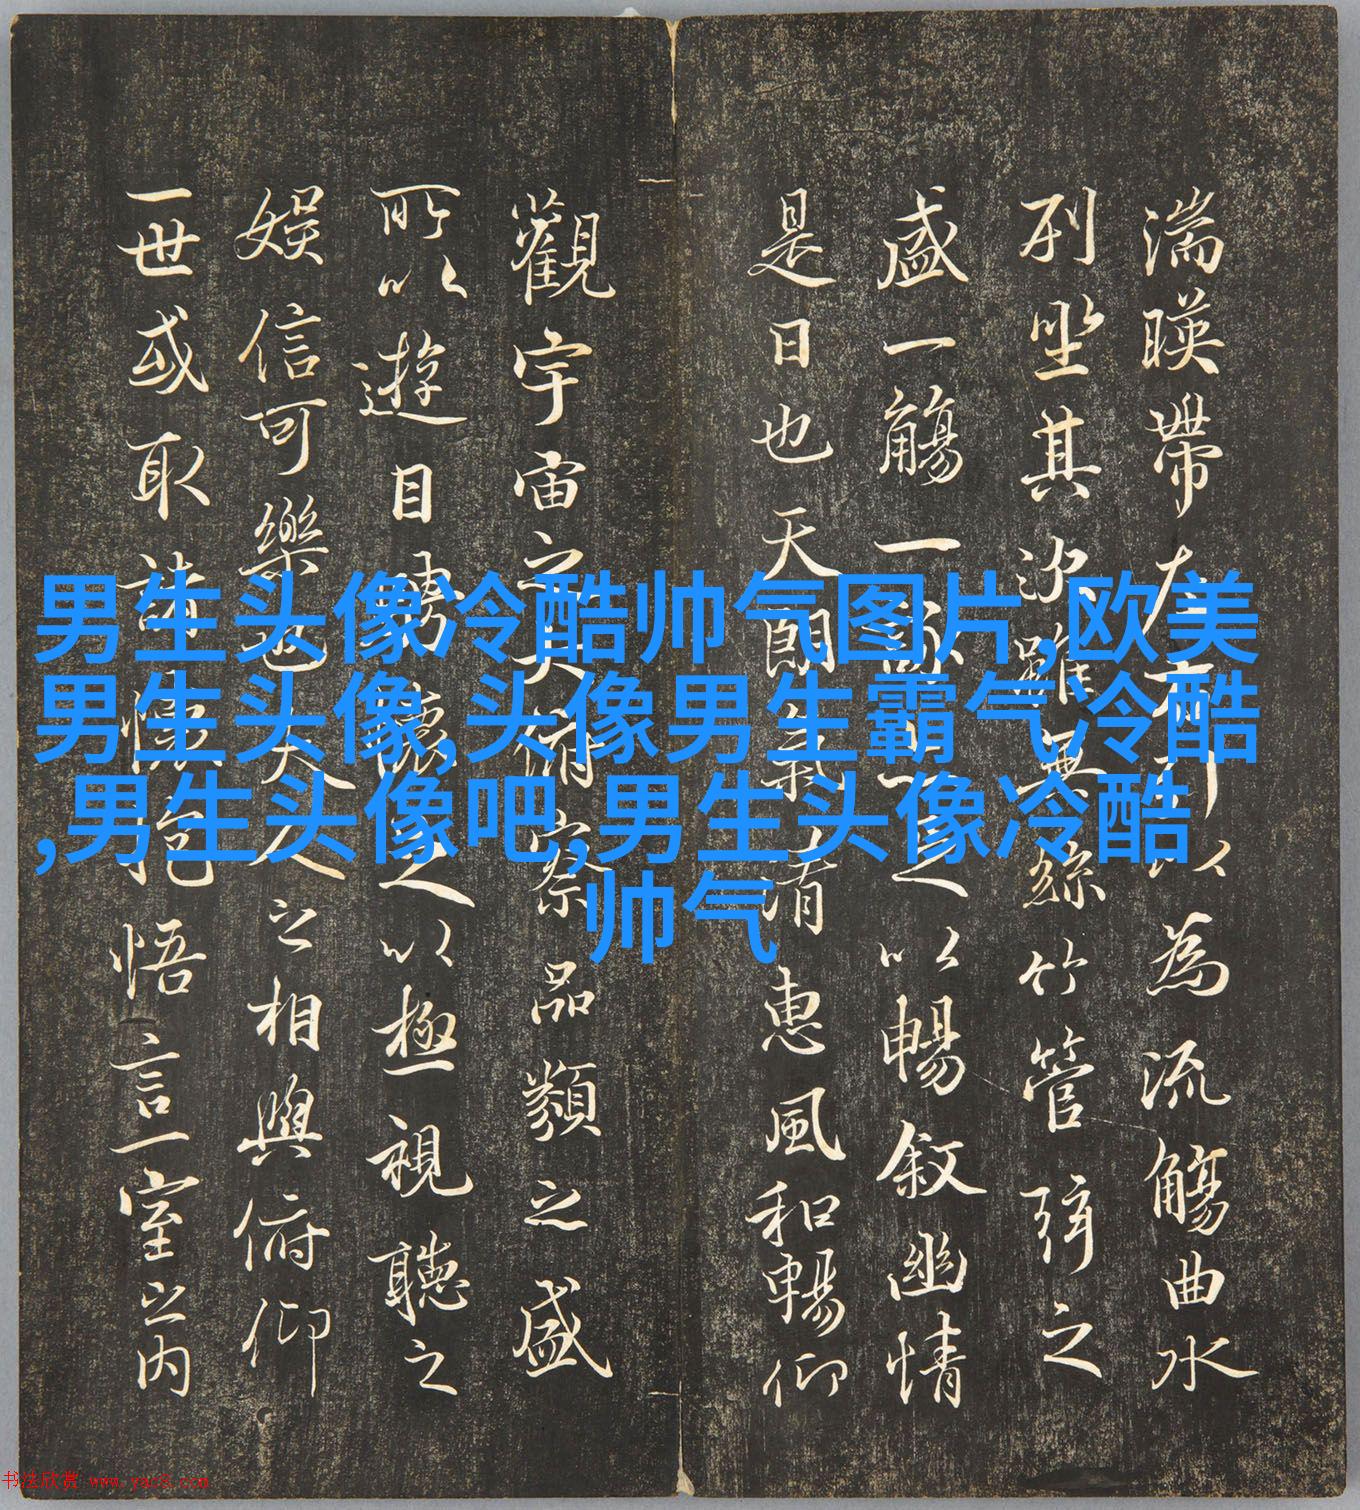 湍暎帶左右引以為流觴曲水
列坐其次雖無絲竹管弦之
盛一觴一詠亦足以暢叙幽情
是日也天朗氣清惠風和暢仰
觀宇宙之大俯察品類之盛
所以遊目騁懷足以極視聽之
娛信可樂也夫人之相與俯仰
一世或取諸懷抱悟言一室之内
男生头像冷酷帅气图片,欧美
男生头像,头像男生霸气冷酷
,男生头像吧,男生头像冷酷
帅气
书法欣赏 www.yac8.com